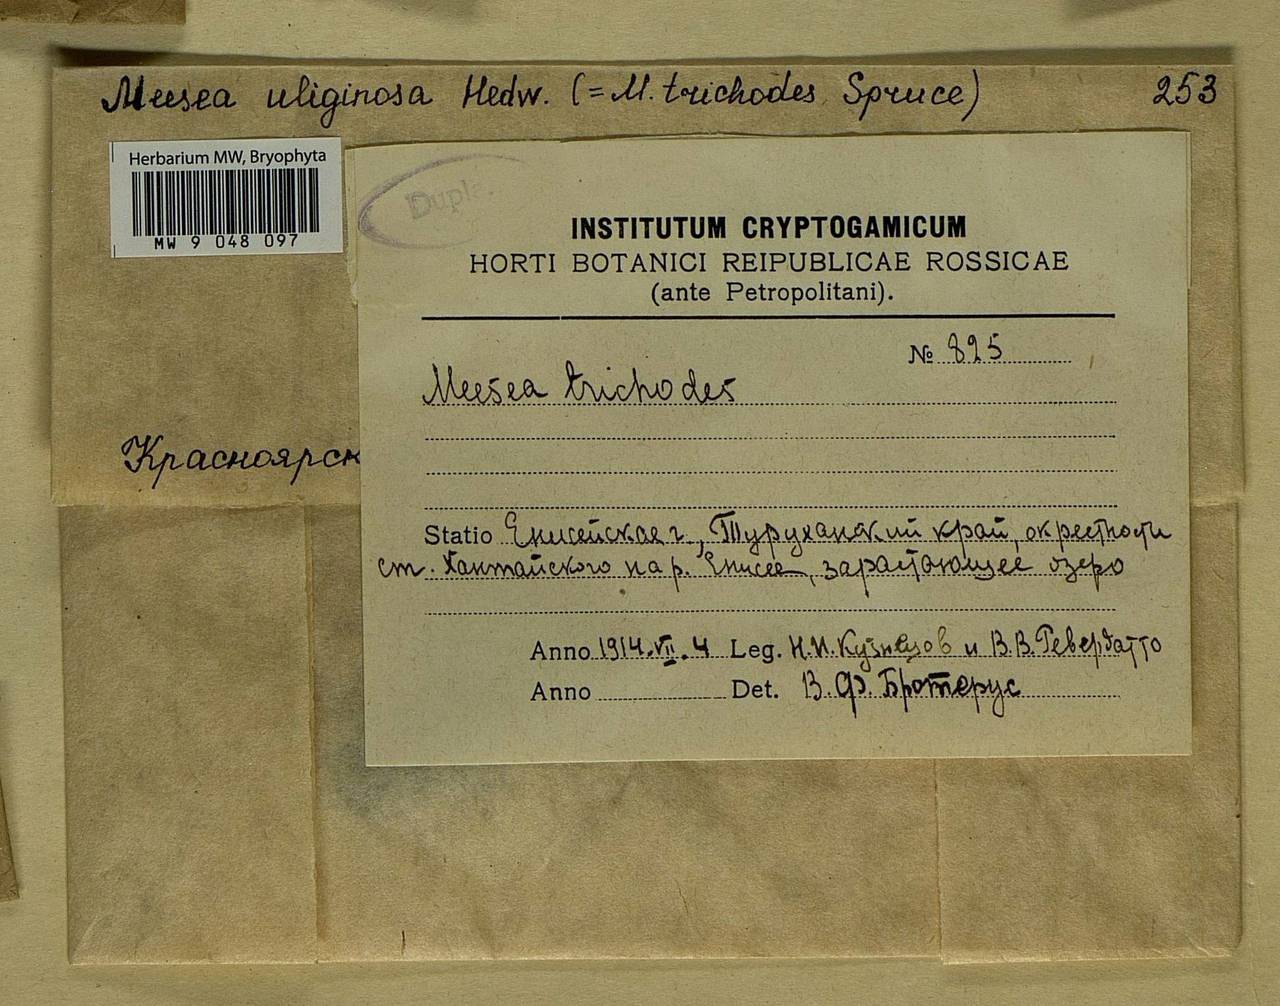 Meesea uliginosa Hedw. (=M. trichodes Spruce) 253
Herbarium MW, Bryophyta
MW 9 048 097
Dupla.
INSTITUTUM CRYPTOGAMICUM
HORTI BOTANICI REIPUBLICAE ROSSICAE
(ante Petropolitani).
№ 825
Meesea trichodes
Красноярск
Statio Енисейская г., Туруханский край, окрестности
ст. Хантайского на р. Енисее, зарастающее озеро
Anno 1914.VII.4 Leg. Н.И. Кузнецов и В.В. Ревердатто
Anno Det. В.Ф. Бротерус